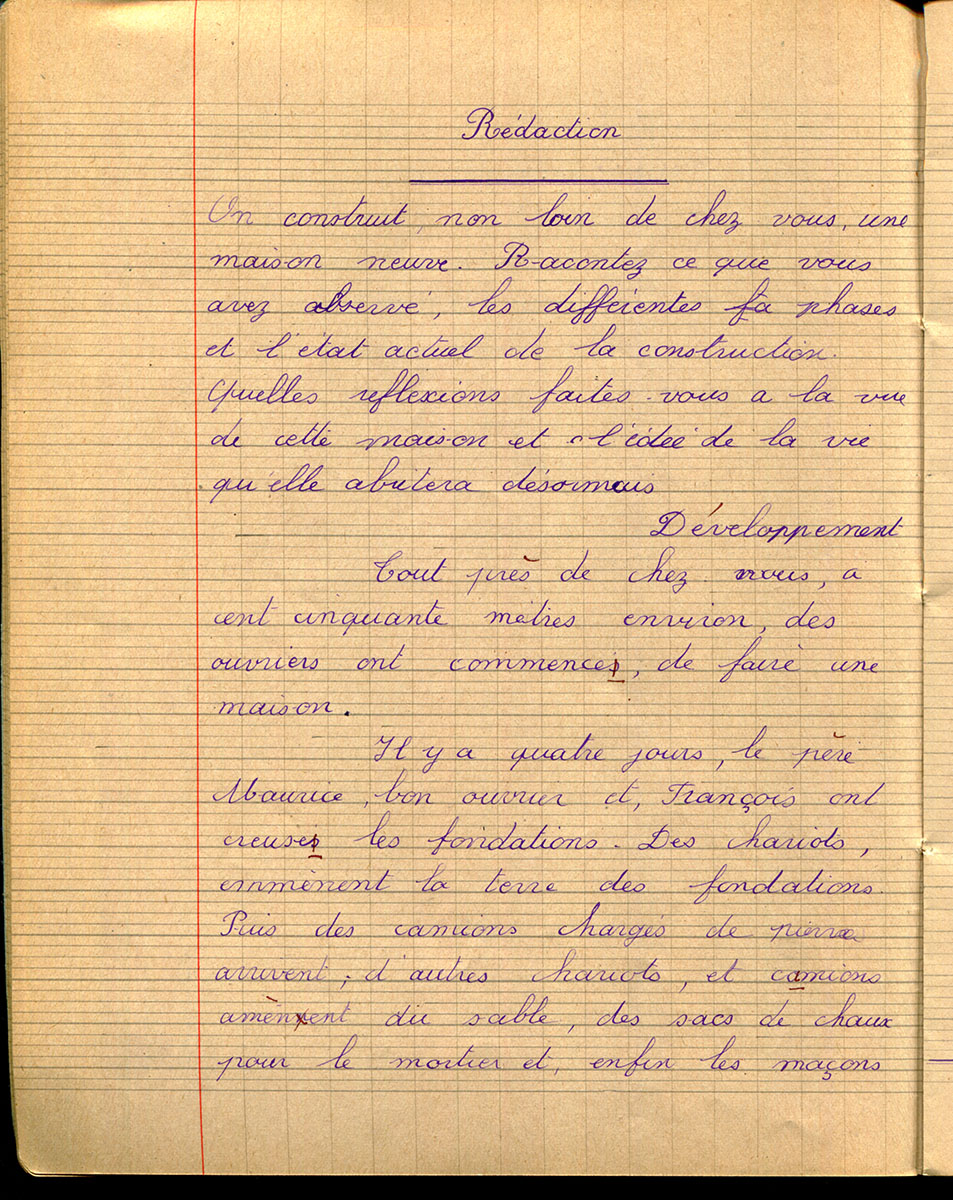 Rédaction
On construit, non loin de chez vous, une
maison neuve. Racontez ce que vous
avez observé, les différentes fa phases
et l'état actuel de la construction.
Quelles reflexions faites-vous a la vue
de cette maison et a l'idée de la vie
qu'elle abritera désormais
Développement
Tout près de chez nous, à
cent cinquante mètres environ, des
ouvriers ont commencés, de faire une
maison.
Il y a quatre jours, le père
Maurice, bon ouvrier et, François ont
creusés les fondations. Des chariots,
emmènent la terre des fondations.
Puis des camions chargés de pierre
arrivent; d'autres chariots, et camions
amènent du sable, des sacs de chaux
pour le mortier et, enfin les maçons